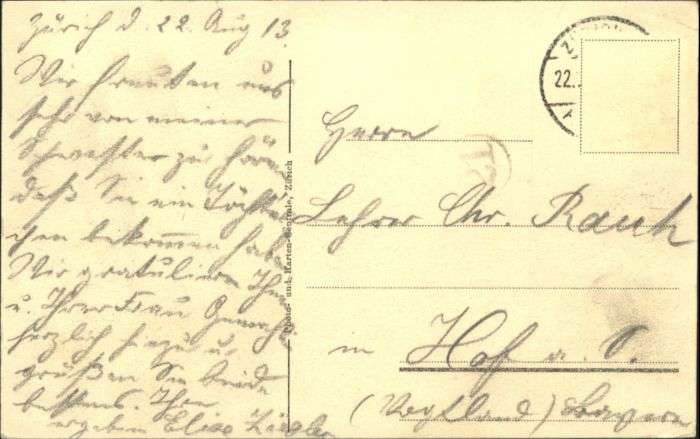 Zürich d. 22. Aug 13.
Wir freuten uns
sehr von meiner
Schwester zu hören
daß Sie ein Töchter
chen bekommen haben
Wir gratulieren Ihnen
u. Ihrer Frau Gemahlin
herzlich hiezu u.
grüßen Sie beide
bestens. Ihre
ergeben Elise Ziegler
Photo- und Karten-Centrale, Zürich
22.
Herrn
Lehrer Chr. Rauh
in Hof a. S.
(Vogtland) Bayern